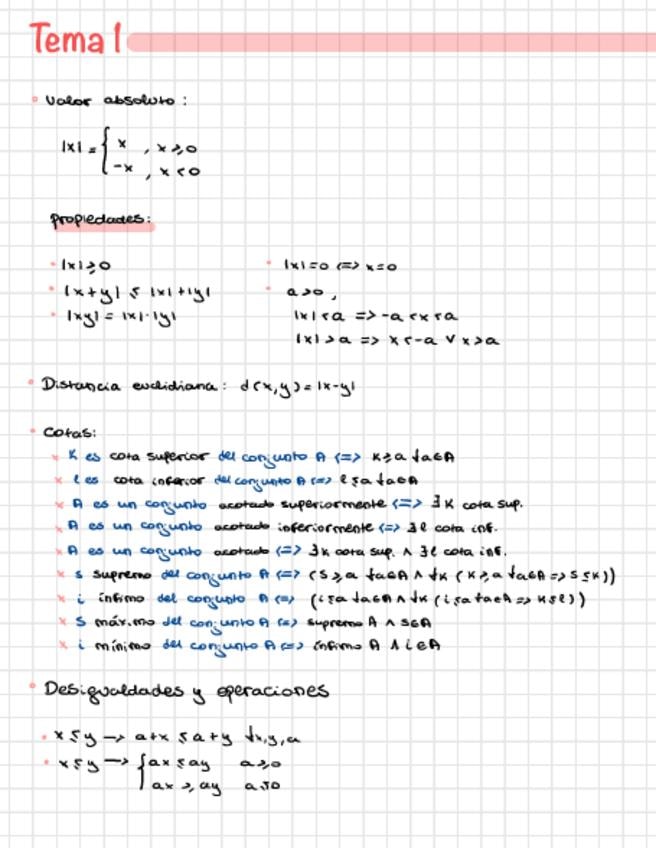 Tema 1
Valor absoluto:
|x| = { x , x ≥ 0
-x , x < 0
Propiedades:
|x| ≥ 0
|x+y| ≤ |x|+|y|
|xy| = |x|·|y|
|x|=0 <=> x=0
a>0,
|x|<a => -a<x<a
|x|>a => x<-a ∨ x>a
Distancia euclidiana: d(x,y)=|x-y|
Cotas:
K es cota superior del conjunto A <=> K≥a ∀a∈A
l es cota inferior del conjunto A <=> l≤a ∀a∈A
A es un conjunto acotado superiormente <=> ∃K cota sup.
A es un conjunto acotado inferiormente <=> ∃l cota inf.
A es un conjunto acotado <=> ∃K cota sup. ∧ ∃l cota inf.
s supremo del conjunto A <=> (s≥a ∀a∈A ∧ ∀K (K≥a ∀a∈A => s≤K))
i ínfimo del conjunto A <=> (i≤a ∀a∈A ∧ ∀K (l≤a ∀a∈A => K≤l))
S máximo del conjunto A <=> supremo A ∧ S∈A
i mínimo del conjunto A <=> ínfimo A ∧ i∈A
Desigualdades y operaciones
x≤y -> a+x ≤ a+y ∀x,y,a
x≤y -> { ax≤ay a≥0
ax≥ay a≤0